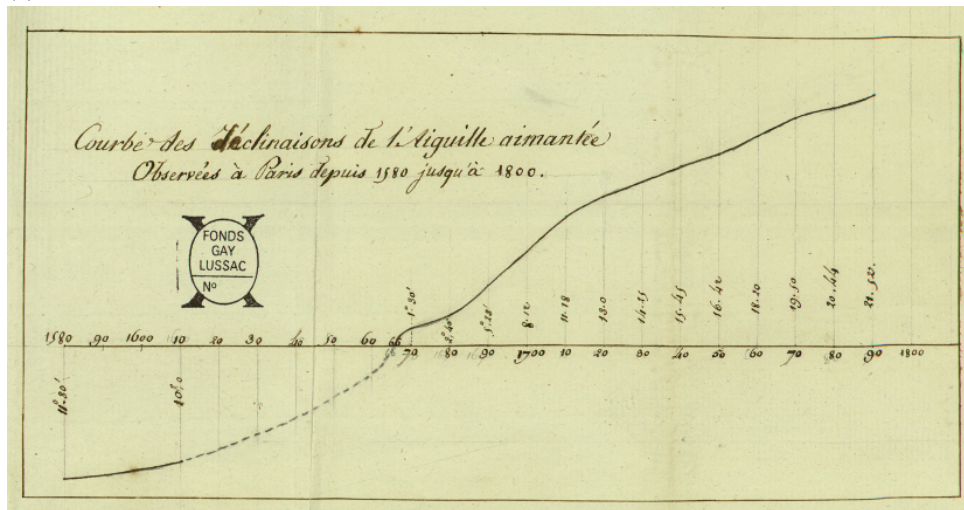 Courbe des déclinaisons de l'Aiguille aimantée
Observées à Paris depuis 1580 jusqu'à 1800.
FONDS
GAY
LUSSAC
No
1°.30'
2°.40'
5°.20'
8.12
11.18
13.0
14.25
15.45
16.42
18.20
19.50
20.44
21.52.
1580 90 1600 10 20 30 40 50 60 66 70 80 90 1700 10 20 30 40 50 60 70 80 90 1800
11°.30'
10°.0